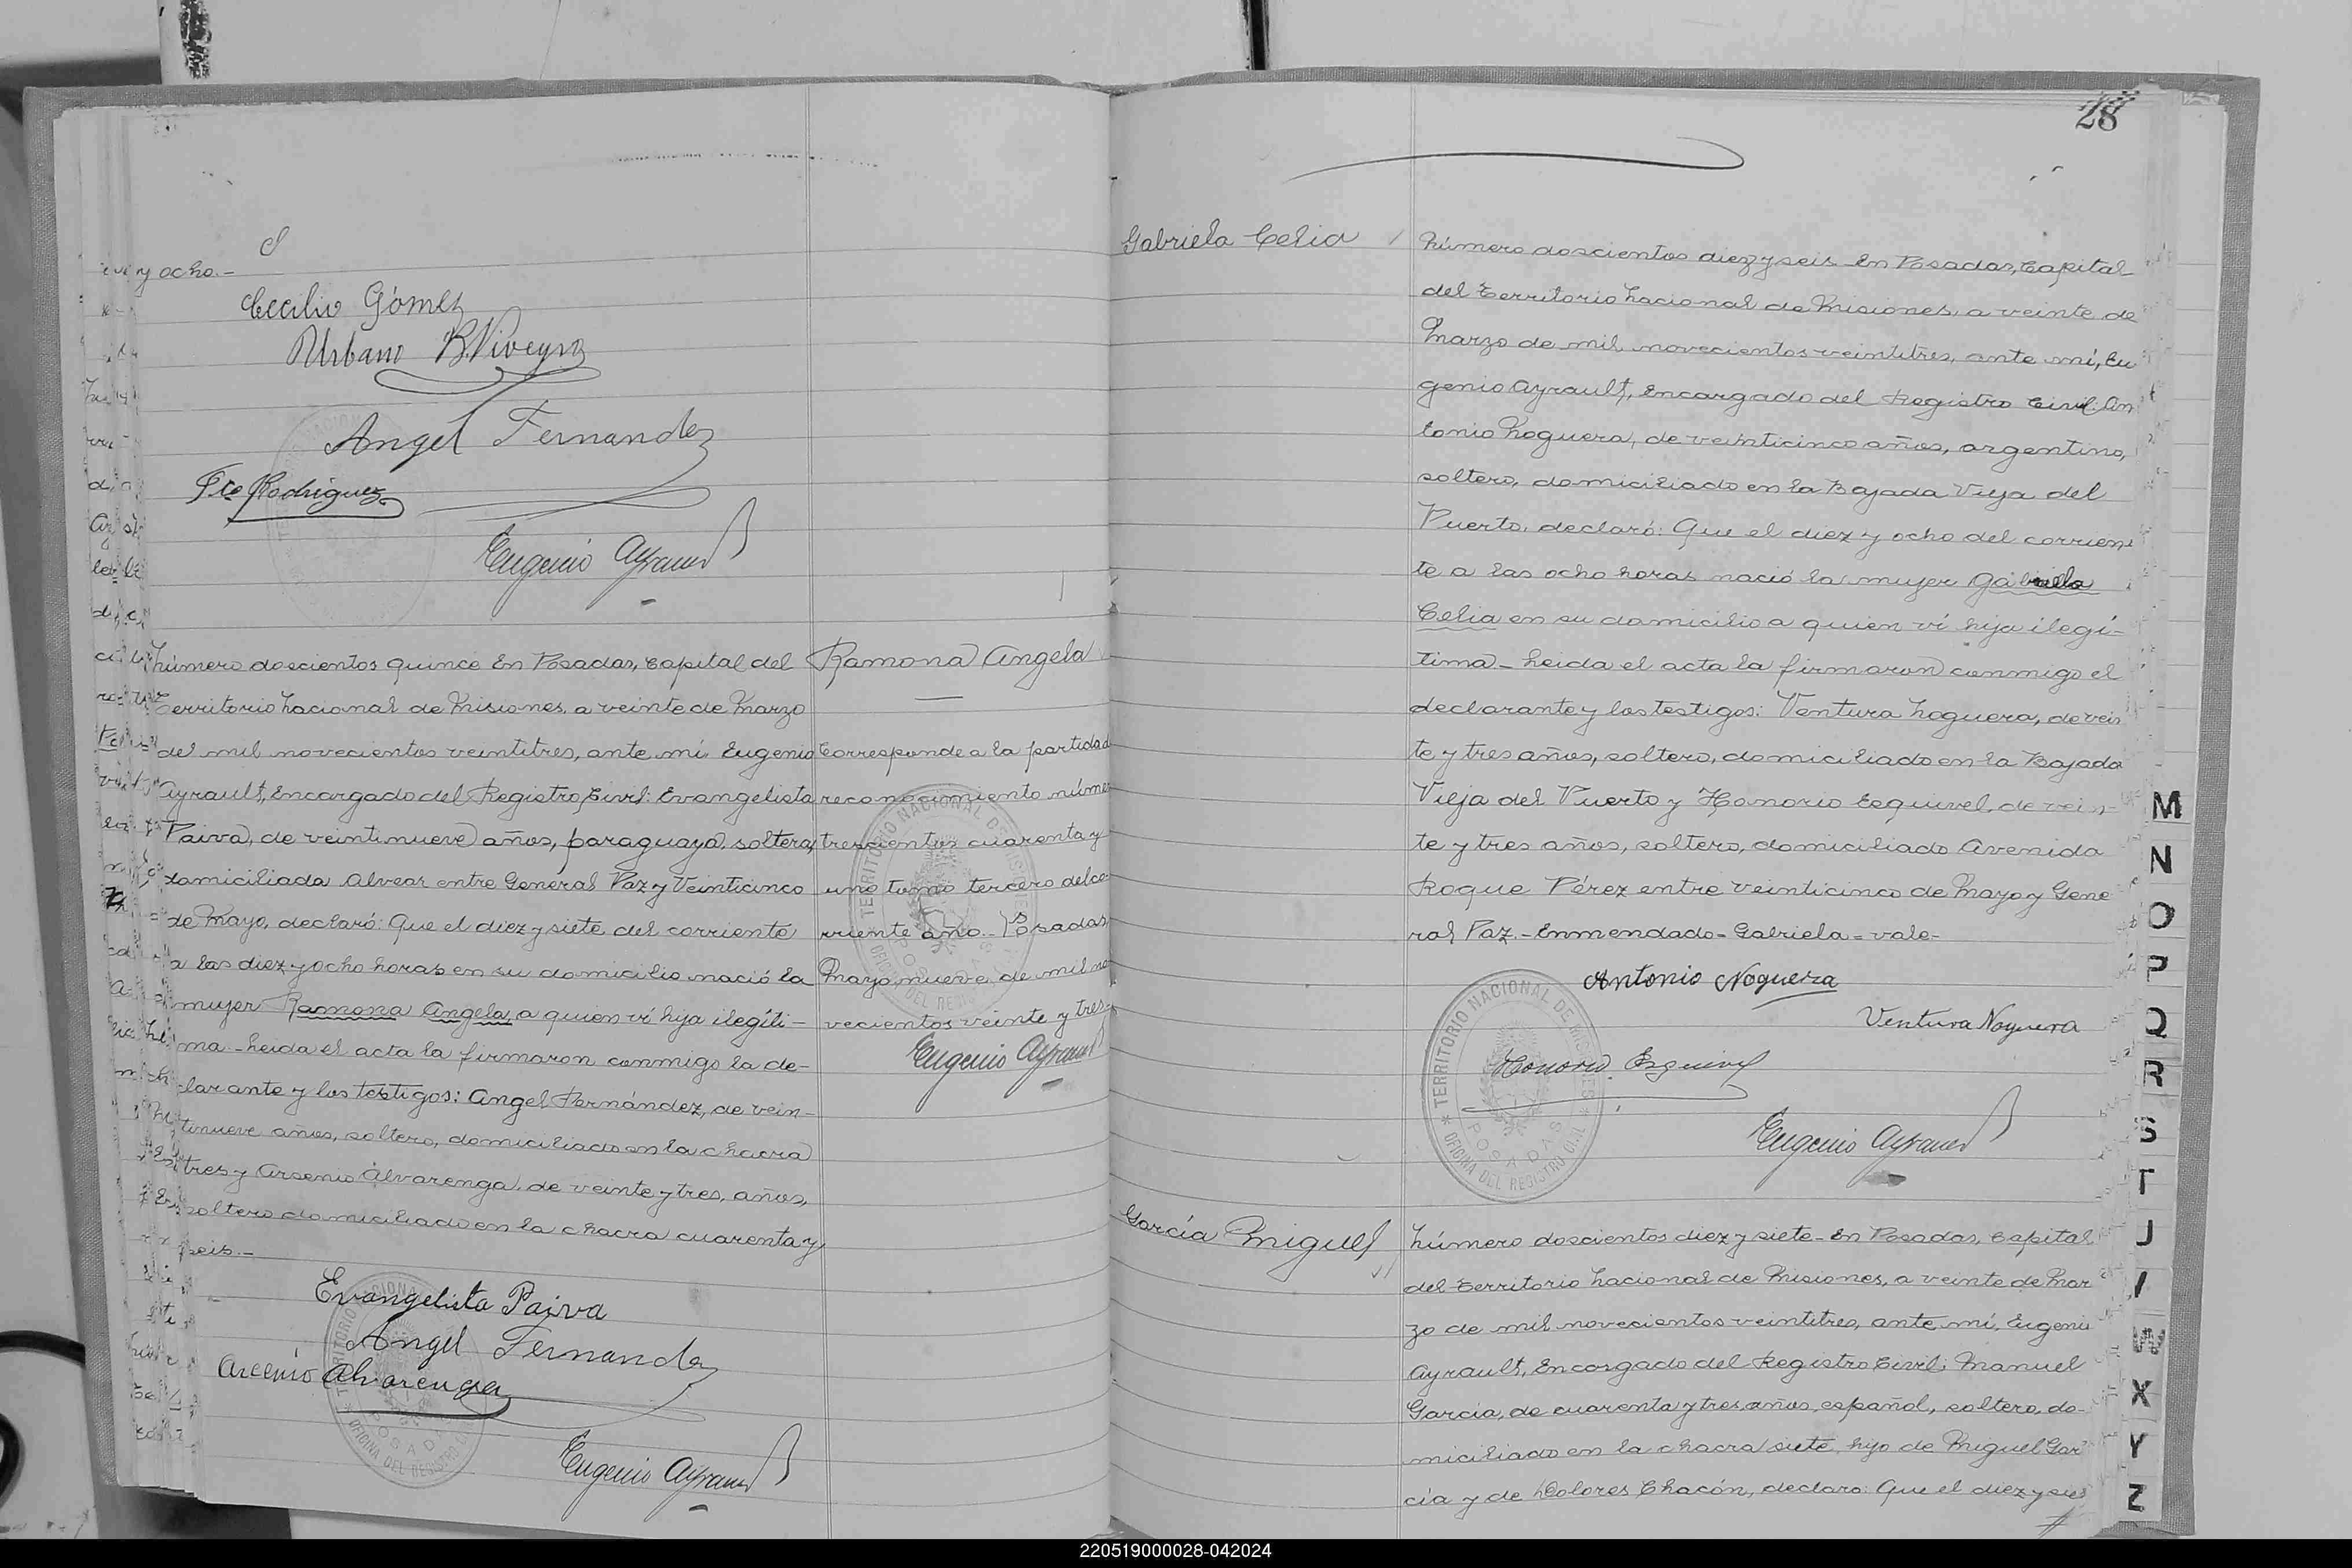 28
y ocho.-
Cecilio Gómez
Urbano B. Niveyro
Angel Fernandez
Fco Rodriguez
Eugenio Ayrault
Número doscientos quince En Posadas, Capital del
Territorio Nacional de Misiones, a veinte de Marzo
del mil novecientos veintitres, ante mí, Eugenio
Ayrault, Encargado del Registro Civil: Evangelista
Paiva, de veintinueve años, paraguaya, soltera,
domiciliada Alvear entre General Paz y Veinticinco
de Mayo, declaró: Que el diez y siete del corriente
a las diez y ocho horas en su domicilio nació la
mujer Ramona Angela, a quien ví hija ilegíti-
ma.-Leida el acta la firmaron conmigo la de-
clarante y los testigos: Angel Fernández, de vein-
tinueve años, soltero, domiciliado en la chacra
tres y Arsenio Alvarenga, de veinte y tres, años,
soltero domiciliado en la chacra cuarenta y
seis.-
Evangelista Paiva
Angel Fernandez
Arcenio Alvarenga
Eugenio Ayrault
Ramona Angela
Corresponde a la partida d
reconocimiento núme
trescientos cuarenta y
uno tomo tercero del co-
rriente año.- Posadas,
Mayo nueve de mil no-
vecientos veinte y tres-
Eugenio Ayrault
Gabriela Celia
Número doscientos diez y seis- En Posadas, Capital
del Territorio Nacional de Misiones, a veinte de
Marzo de mil novecientos veintitres, ante mí, Eu
genio Ayrault, Encargado del Registro Civil: An
tonio Noguera, de veinticinco años, argentino,
soltero, domiciliado en la Bajada Vieja del
Puerto, declaró: Que el diez y ocho del corrien
te a las ocho horas nació la mujer Gabriela
Celia en su domicilio a quien ví hija ilegí-
tima - Leida el acta la firmaron conmigo el
declarante y los testigos: Ventura Noguera, de vein
te y tres años, soltero, domiciliado en la Bajada
Vieja del Puerto y Honorio Esquivel, de vein-
te y tres años, soltero, domiciliado Avenida
Roque Pérez entre Veinticinco de Mayo y Gene
ral Paz.-Enmendado-Gabriela-vale-
Antonio Noguera
Ventura Noguera
Honorio Esquivel
Eugenio Ayrault
TERRITORIO NACIONAL DE MISIONES
POSADAS
OFICINA DEL REGISTRO CIVIL
García Miguel
Número doscientos diez y siete- En Posadas, Capital
del Territorio Nacional de Misiones, a veinte de Mar
zo de mil novecientos veintitres, ante mí, Eugenio
Ayrault, Encargado del Registro Civil: Manuel
García, de cuarenta y tres años, español, soltero, do-
miciliado en la chacra siete, hijo de Miguel Gar
cía y de Dolores Chacón, declaro: Que el diez y sie
M
N
O
P
Q
R
S
T
J
I
W
X
Y
Z
220519000028-042024